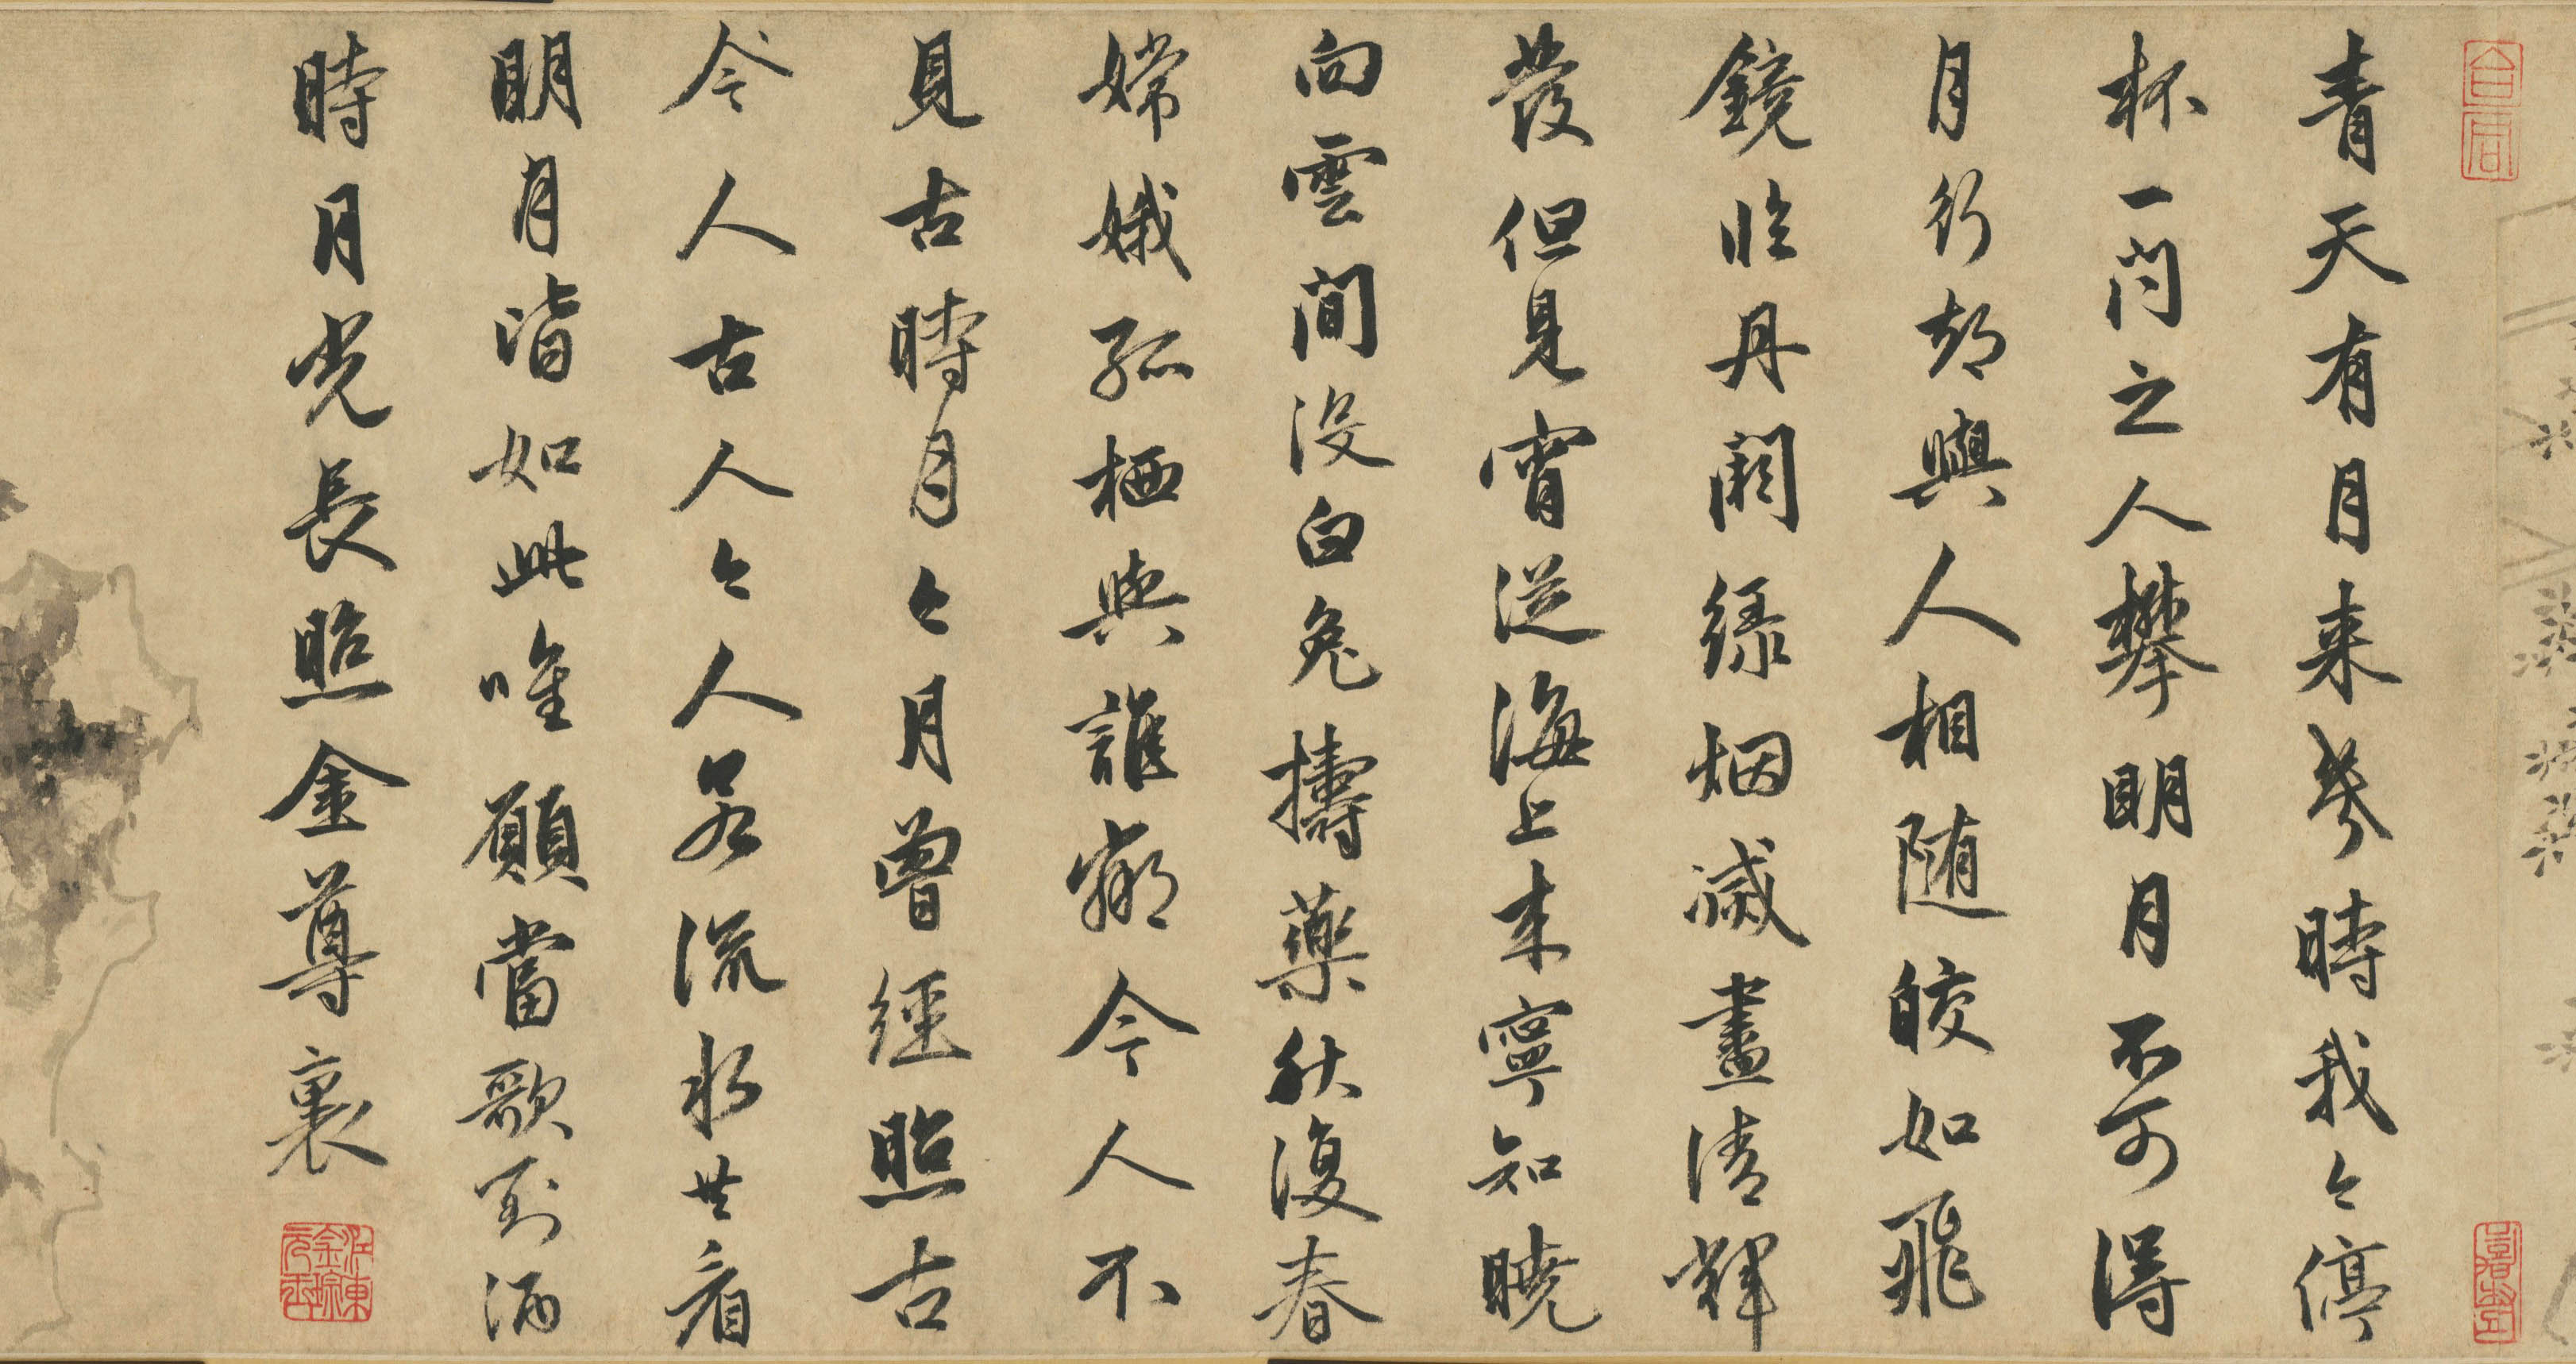 青天有月来幾時我々停
杯一問之人攀明月不可得
月行却與人相随皎如飛
鏡臨丹闕緑烟滅盡清輝
發但見宵従海上来寧知曉
向雲間没白兔擣藥秋復春
嫦娥孤栖與誰鄰今人不
見古時月々月曾經照古
今人古人々人若流水共看
明月皆如此唯願當歌對酒
時月光長照金尊裏